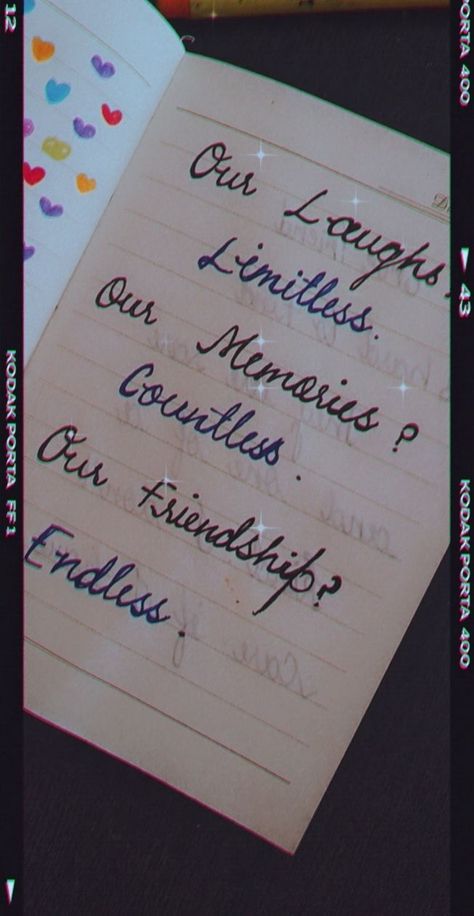 Our Laughs,
Limitless.
Our Memories ?
Countless.
Our Friendship?
Endless.
12
KODAK PORTA FF1
PORTA 400
43
KODAK PORTA 400